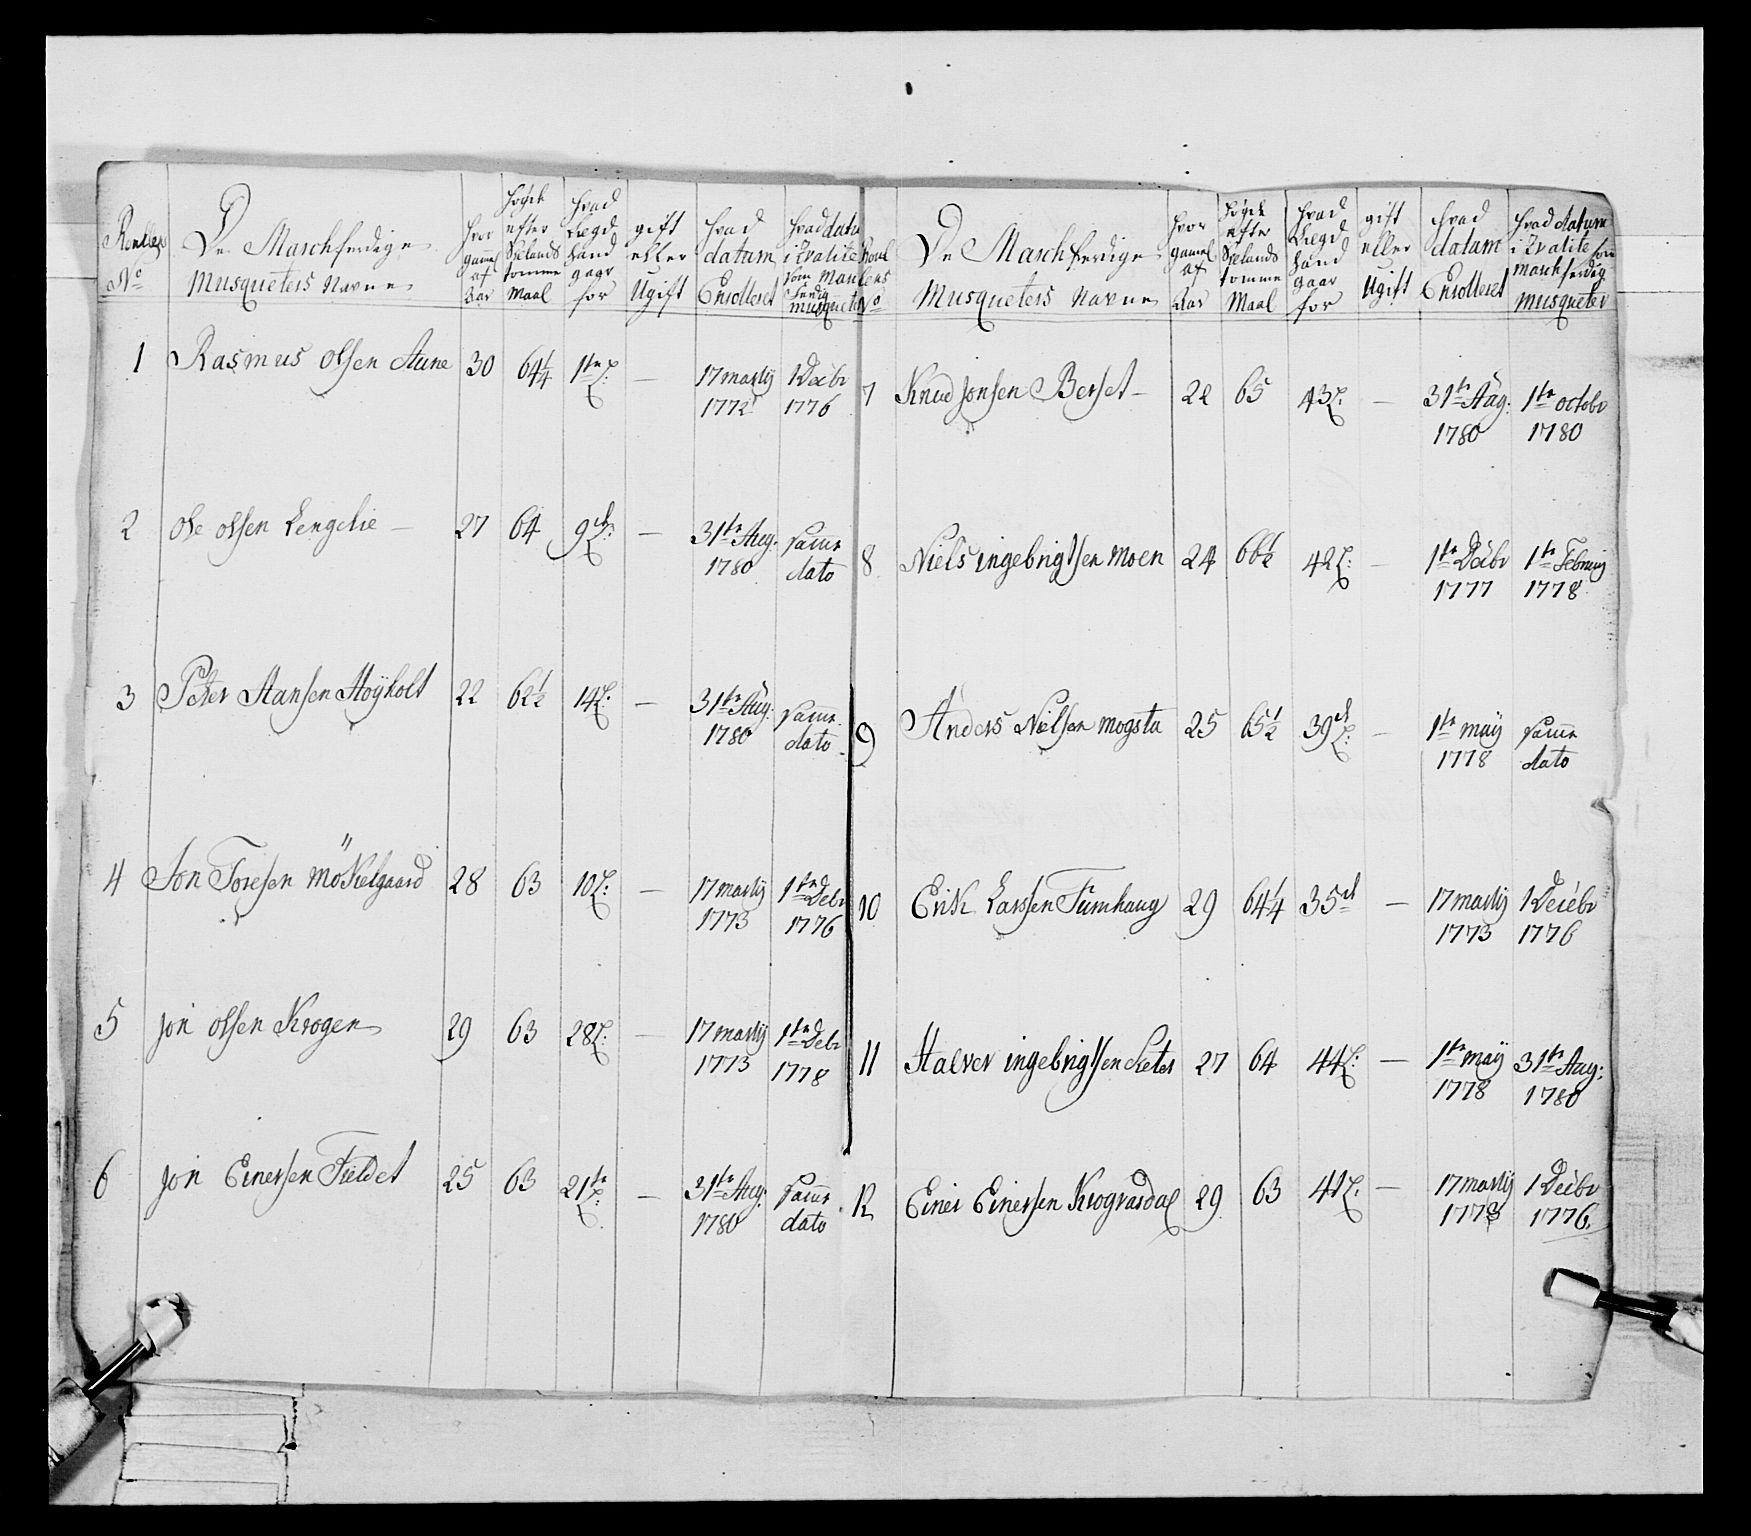 No
De Marchferdige
Musqueters Navne
hvor gamel af Aar
høyde efter Sielands tomme Maal
hvad Legd hand gaar for
gift eller Ugift
hvad datum Enrolleret
hvad datu i Qvalite som Marchferdig musqueter
1 Rasmus olsen Aune 30 64¼ 1te L: — 17 martij 1772 1 Decbr 1776
2 ole olsen Lengelie — 27 64 9de L: — 31te Aug: 1780 Samme dato
3 Peter Hansen Høyholt 22 62½ 14 L: — 31te Aug: 1780 Samme dato
4 Jon Toresen Mökielgaard 28 63 10 L: — 17 martij 1773 1te Debr 1776
5 jon olsen Krogen 29 63 28 L: — 17 martij 1773 1te Debr 1778
6 jon Einersen Fieldet 25 63 21te L: — 31te Aug: 1780 Samme dato
No
De Marchferdige
Musqueters Navne
hvor gamel af Aar
høyde efter Sielands tomme Maal
hvad Legd hand gaar for
gift eller Ugift
hvad datum Enrolleret
hvad datum i Qvalite som marchferdig musqueter
7 Knud jonsen Berset — 22 65 43 L: — 31te Aug: 1780 1te octobr 1780
8 Niels ingebrigtsen Moen 24 66½ 42 L: — 1te Decbr 1777 1te Februarij 1778
9 Anders Nielsen mogsta 25 65½ 39de L: — 1te maij 1778 Samme dato
10 Erik Larssen Furnhaug 29 64¼ 35de — 17 martij 1773 1 Decebr 1776
11 Halver ingebrigtsen Seter 27 64 44 L: — 1te maij 1778 31te Aug: 1780
12 Einer Einersen Krogvasdal 29 63 41 L. — 17 martij 1773 1 Decbr 1776.